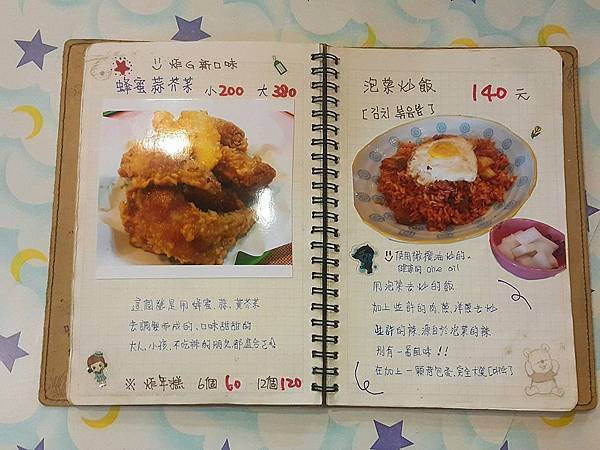 炸G新口味
蜂蜜蒜芥茉 小200 大380
這個就是用蜂蜜、蒜、黃芥茉
去調製而成的、口味甜甜的
大人、小孩、不吃辣的朋友都適合
※ 炸年糕 6個60 12個120
泡菜炒飯 140元
[김치 볶음밥]
使用橄欖油炒的。
健康的 Olive oil
用泡菜去炒的飯
加上些許的肉、蔥、洋蔥去炒
些許的辣、源自於泡菜的辣
別有一番風味!!
在加上一顆荷包蛋、完全大滿足